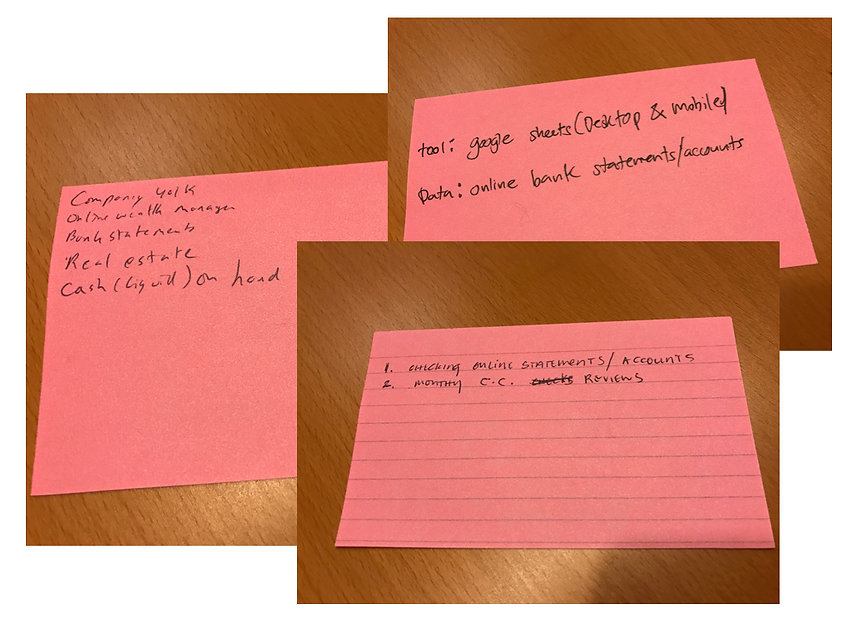 Company 401K
Online wealth manager
Bank statements
Real estate
Cash (Liquid) on hand
tool: google sheets (Desktop & mobile)
Data: online bank statements/accounts
1. CHECKING ONLINE STATEMENTS/ACCOUNTS
2. MONTHLY C.C. checks REVIEWS